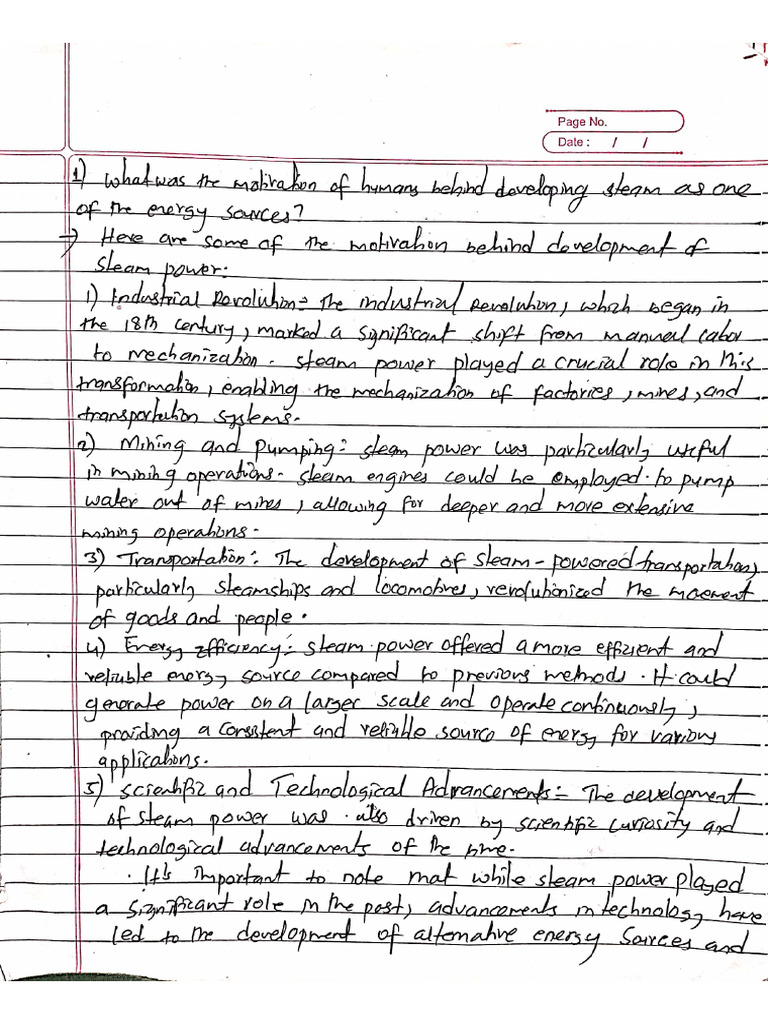 Page No.
Date : / /
1) What was the motivation of humans behind developing steam as one
of the energy sources?
→ Here are some of the motivation behind development of
steam power:
1) Industrial Revolution:- The industrial revolution, which began in
the 18th century, marked a significant shift from manual labor
to mechanization. steam power played a crucial role in this
transformation, enabling the mechanization of factories, mines, and
transportation systems.
2) Mining and Pumping:- steam power was particularly useful
in mining operations. steam engines could be employed to pump
water out of mines, allowing for deeper and more extensive
mining operations.
3) Transportation:- The development of steam-powered transportation,
particularly steamships and locomotives, revolutionized the movement
of goods and people.
4) Energy Efficiency:- steam power offered a more efficient and
reliable energy source compared to previous methods. It could
generate power on a larger scale and operate continuously,
providing a consistent and reliable source of energy for various
applications.
5) Scientific and Technological Advancements:- The development
of steam power was also driven by scientific curiosity and
technological advancements of the time.
It's important to note that while steam power played
a significant role in the past, advancements in technology have
led to the development of alternative energy sources and